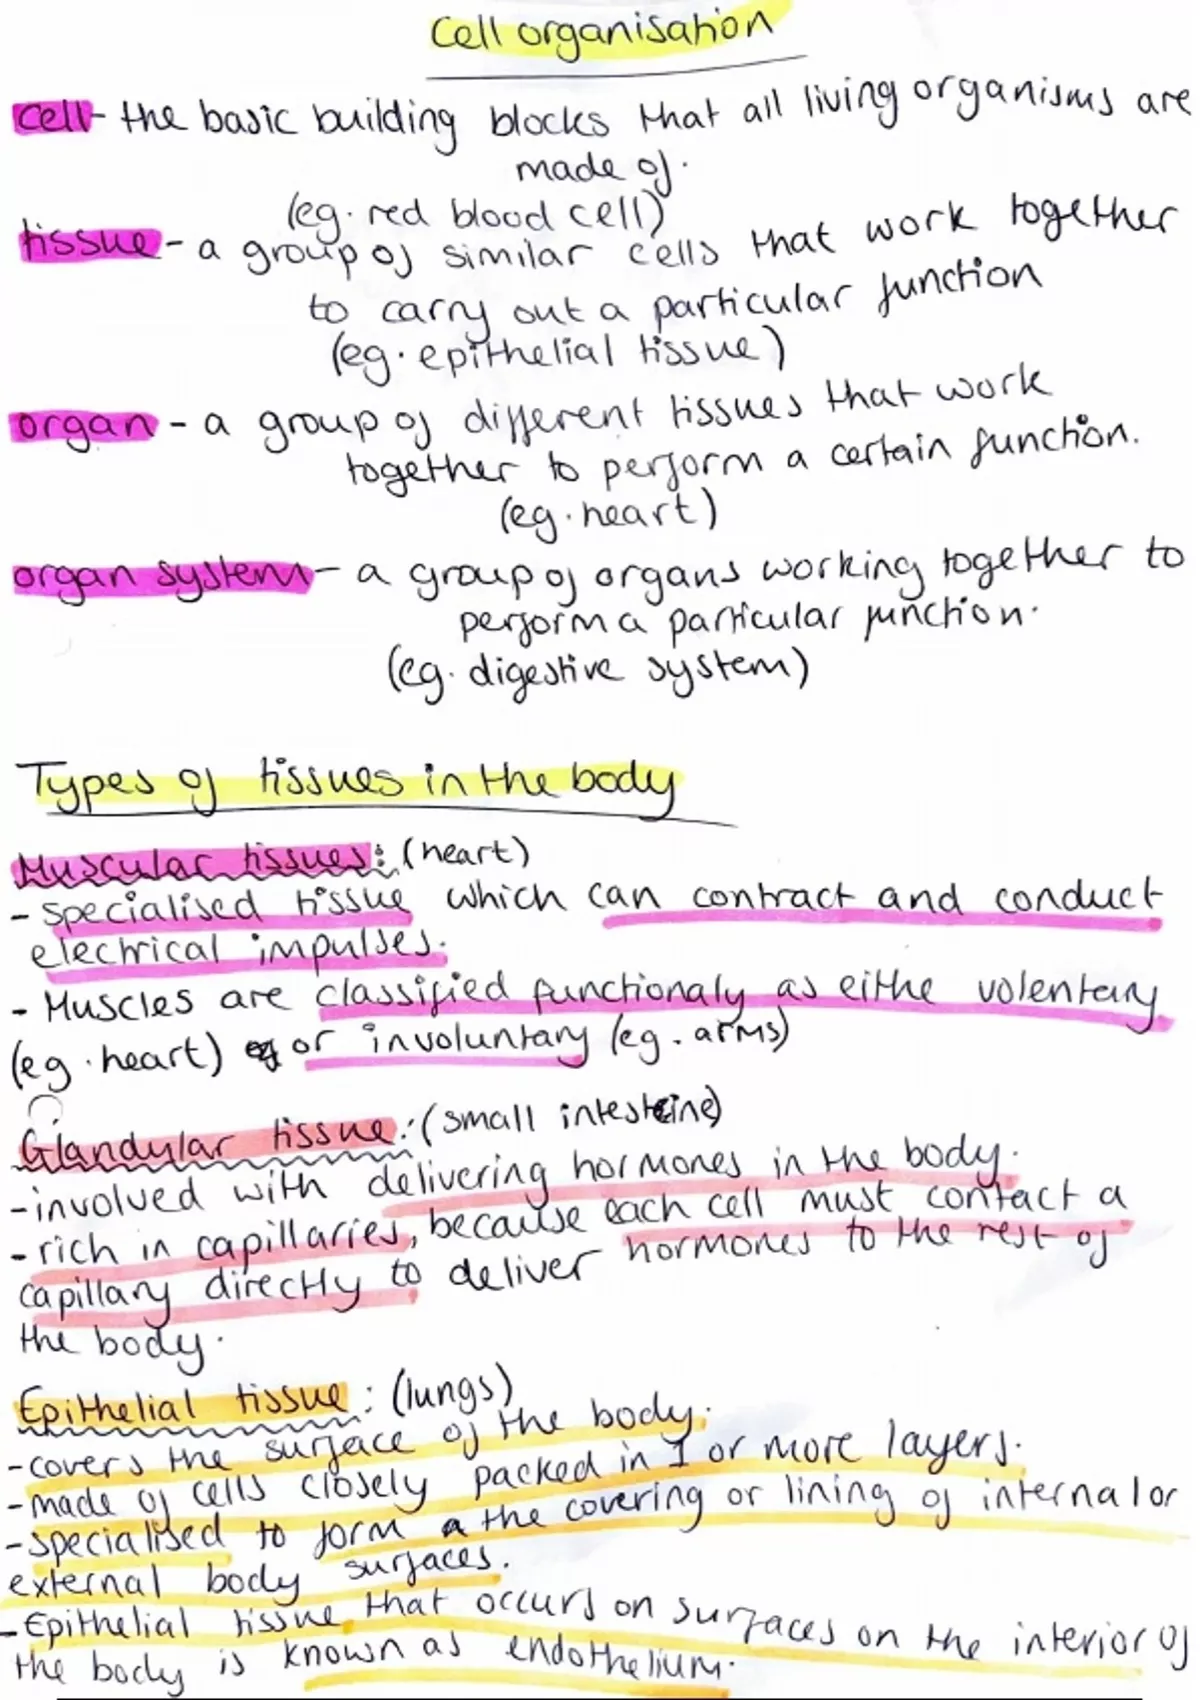 Cell organisation
cell - the basic building blocks that all living organisms are
made of.
(eg. red blood cell)
tissue - a group of similar cells that work together
to carry out a particular function
(eg. epithelial tissue)
organ - a group of different tissues that work
together to perform a certain function.
(eg. heart)
organ system - a group of organs working together to
perform a particular function.
(eg. digestive system)
Types of tissues in the body
Muscular tissues: (heart)
- specialised tissue which can contract and conduct
electrical impulses.
- Muscles are classified functionaly as eithe volentary
(eg. heart) eg or involuntary (eg. arms)
Glandular tissue: (small intesteine)
- involved with delivering hormones in the body.
- rich in capillaries, because each cell must contact a
capillary directly to deliver hormones to the rest of
the body.
Epithelial tissue: (lungs)
- covers the surface of the body.
- made of cells closely packed in 1 or more layers.
- specialised to form a the covering or lining of internal or
external body surfaces.
- Epithelial tissue that occurs on surfaces on the interior of
the body is known as endothelium.